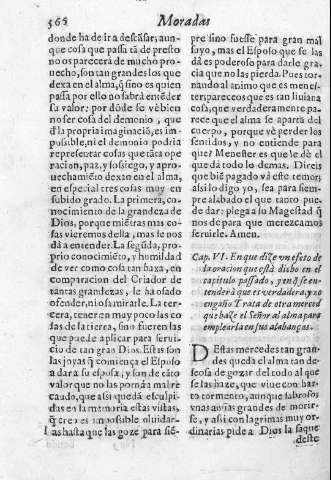 566
Moradas
donde ha de ir a descãsar, aun-
que cosa que passa tã de presto
no os parecerà de mucho pro-
uecho, son tan grandes los que
dexa en el alma, q̃ sino es quien
passa por ello no sabrà enteder
su valor; por dõde se vè bien
no ser cosa del demonio, que
d̃ la propria imaginaciõ, es im-
possible, ni el demonio podria
representar cosas que tãta ope-
racion, paz, y sossiego, y apro-
uechamiẽto dexan en el alma,
en especial tres cosas muy en
subido grado. La primera, co-
nocimiento de la grandeza de
Dios, porque miẽtras mas co-
sas vieremos della, mas se nos
dà a entender. La segũda, pro-
prio conocimiẽto, y humildad
de ver como cosa tan baxa, en
comparacion del Criador de
tantas grandezas, le ha osado
ofender, ni osa mirarle. La ter-
cera, tener en muy poco las co-
sas de la tierra, sino fueren las
que puede aplicar para serui-
cio de tan gran Dios. Estas son
las joyas q̃ comiença el Esposo
a dar a su esposa, y son de tãto
valor que no las pornà a mal re
caudo, que assi quedã esculpi-
das en la memoria estas vistas,
q̃ creo es impossible oluidar-
las hasta que las goze para siẽ-
pre sino fuesse para gran mal
suyo, mas el Esposo que se las
dà es poderoso para darle gra-
cia que no las pierda. Pues tor-
nando al animo que es menes-
ter, pareceos que es tan liuiana
cosa, que verdaderamente pa-
rece que el alma se aparta del
cuerpo, porque vè perder los
sentidos, y no entiende para
que? Menester es que le dè el
que dà todo lo demas. Direis
que biẽ pagado và este temor,
assi lo digo yo, sea para siem-
pre alabado el que tanto pue-
de dar: plega a su Magestad q̃
nos de para que merezcamos
seruirle. Amen.
Cap. VI. En que dize vn efeto de
la oracion que està dicho en el
capitulo passado, y en q̃ se en-
tenderà que es verdadera, y no
engaño. Trata de otra merced
que haze el Señor al alma para
emplearla en sus alabanças.
DEstas mercedes tan gran-
des queda el alma tan de-
seosa de gozar del todo al que
se las haze, que viue con har-
to tormento, aunque sabroso,
vnas ansias grandes de morir-
se, y assi con lagrimas muy or-
dinarias pide a Dios la saque
deste